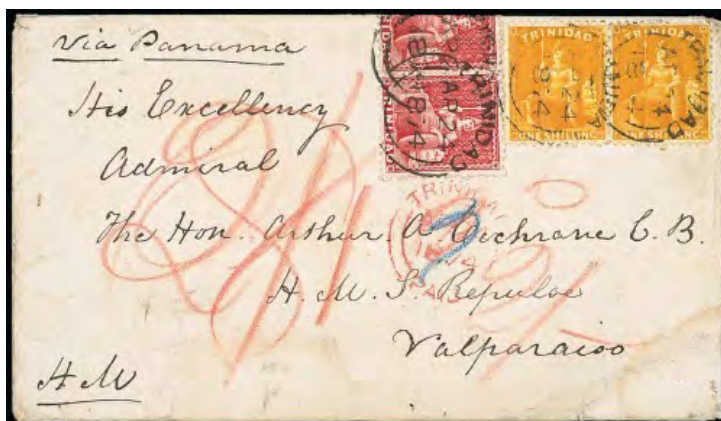 via Panama
His Excellency
Admiral
The Hon. Arthur. A. Cochrane C. B.
H. M. S. Repulse
Valparaiso
H M
TRINIDAD
TRINIDAD
ONE SHILLING
TRINIDAD
TRINIDAD
AP 24
TRINIDAD
2/-